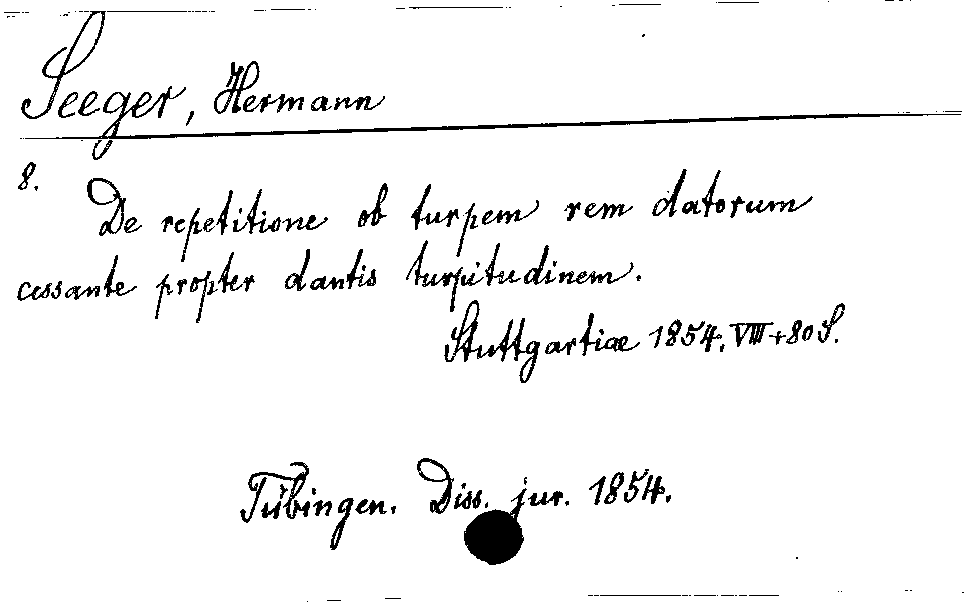 Seeger, Hermann
8.
De repetitione ob turpem rem datorum
cessante propter dantis turpitudinem.
Stuttgartiae 1854. VIII+80 S.
Tübingen. Diss. jur. 1854.